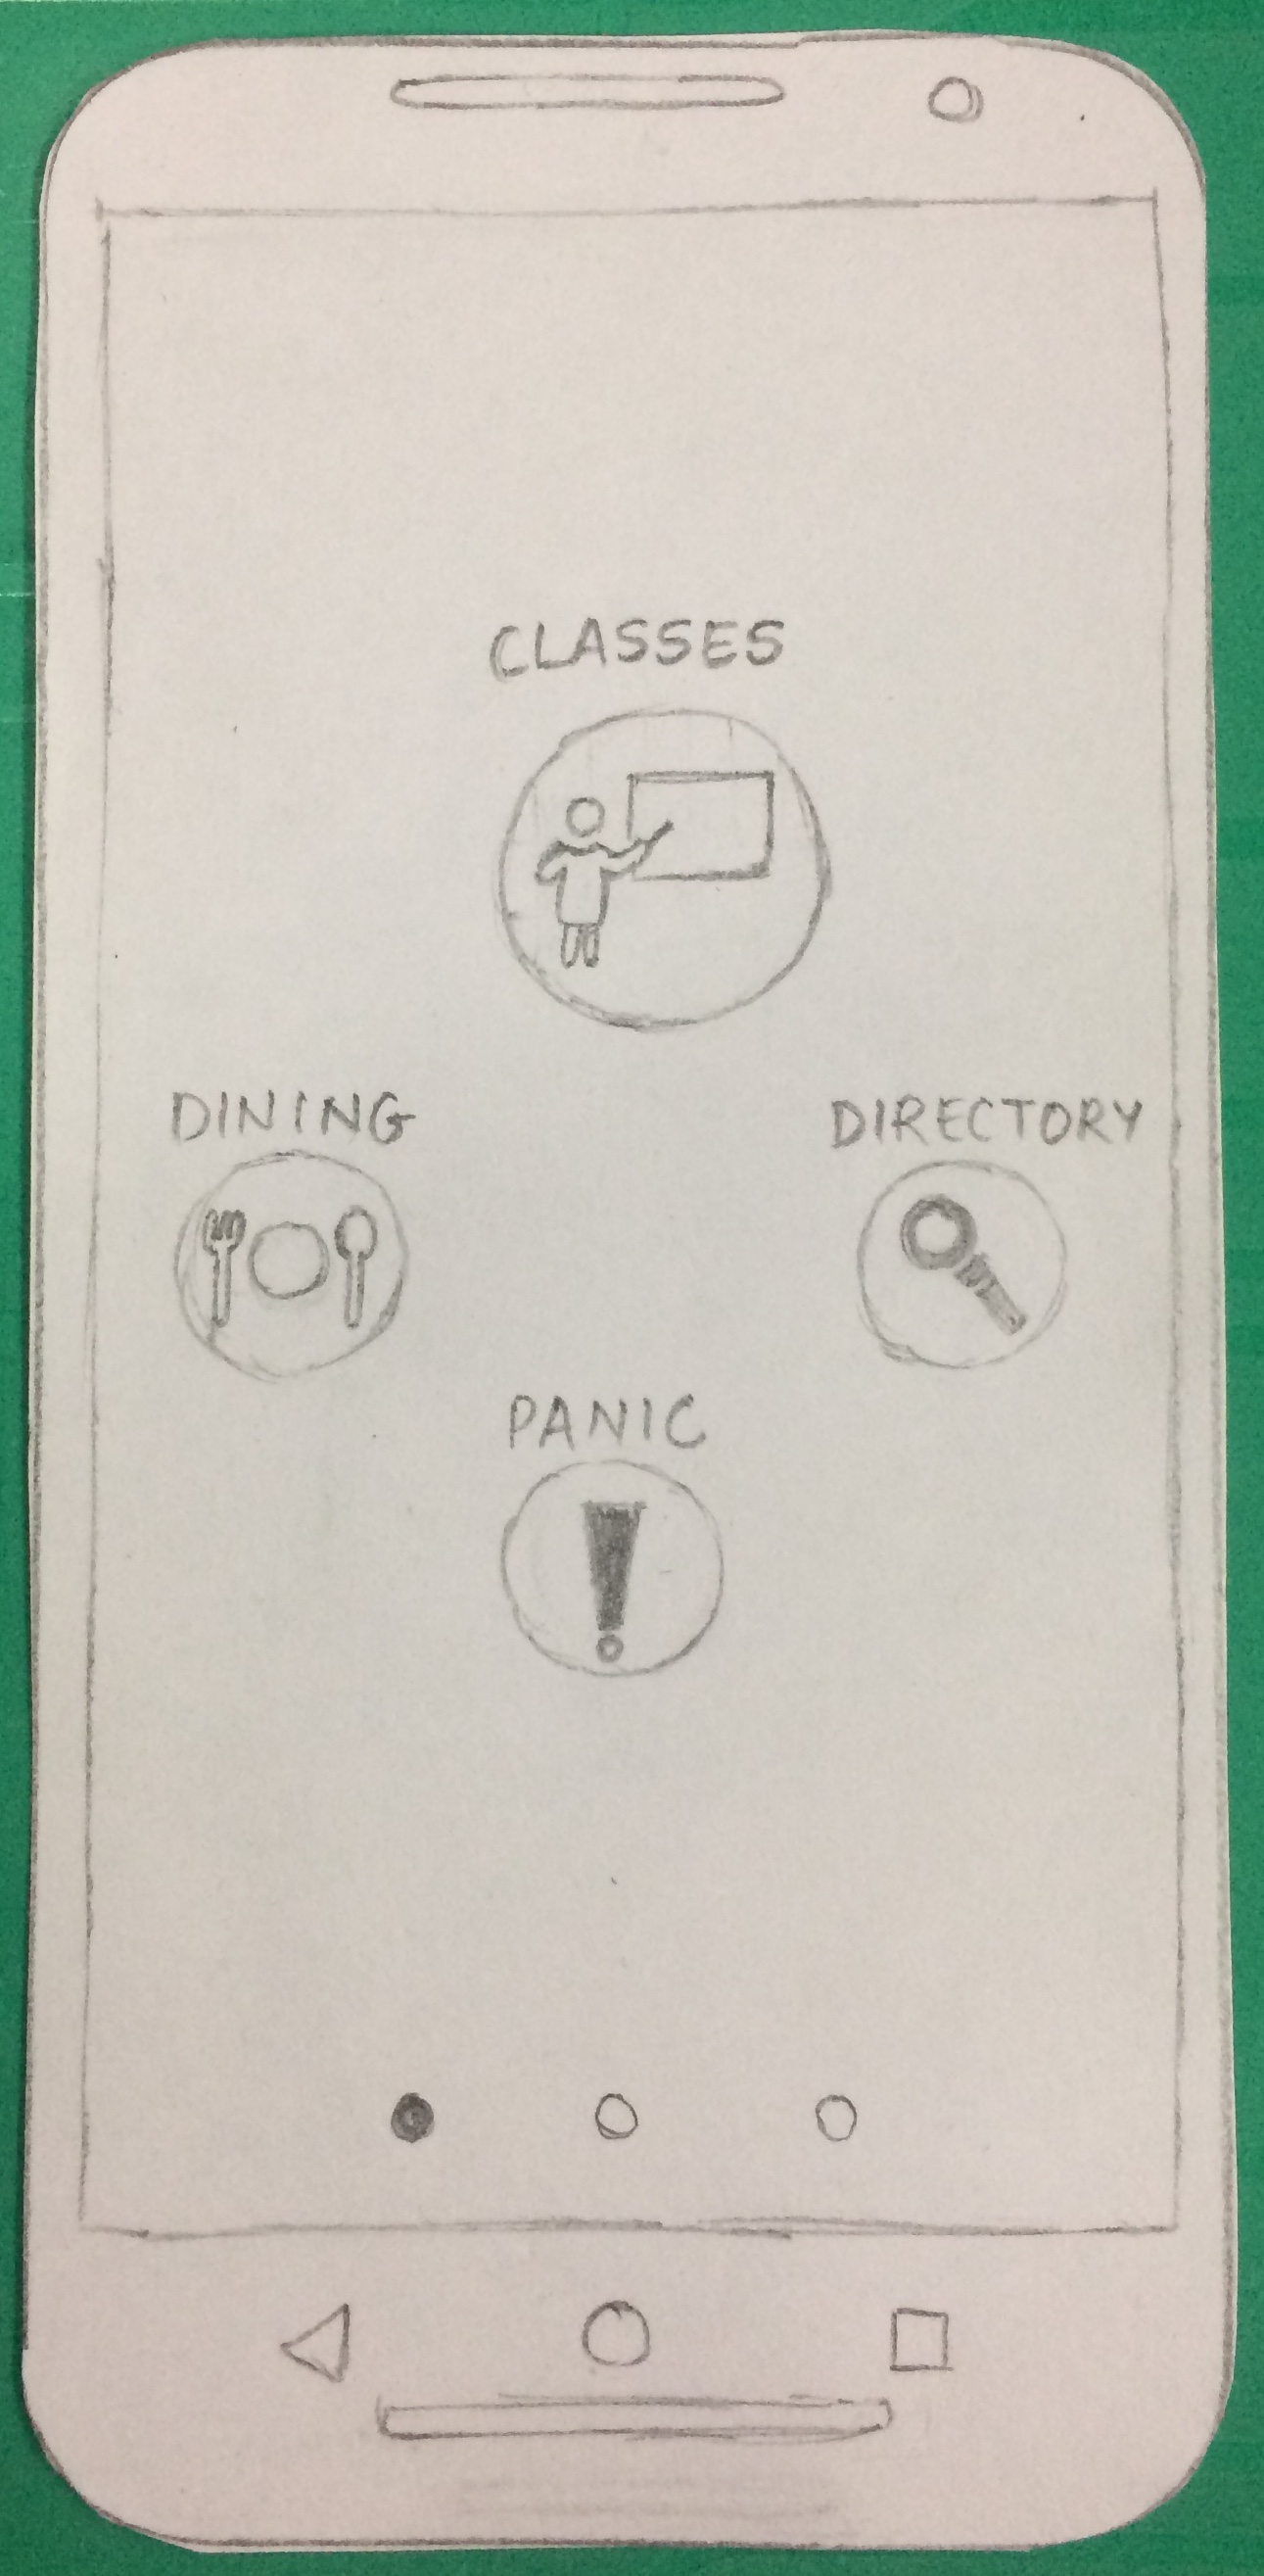 CLASSES
DINING
DIRECTORY
PANIC